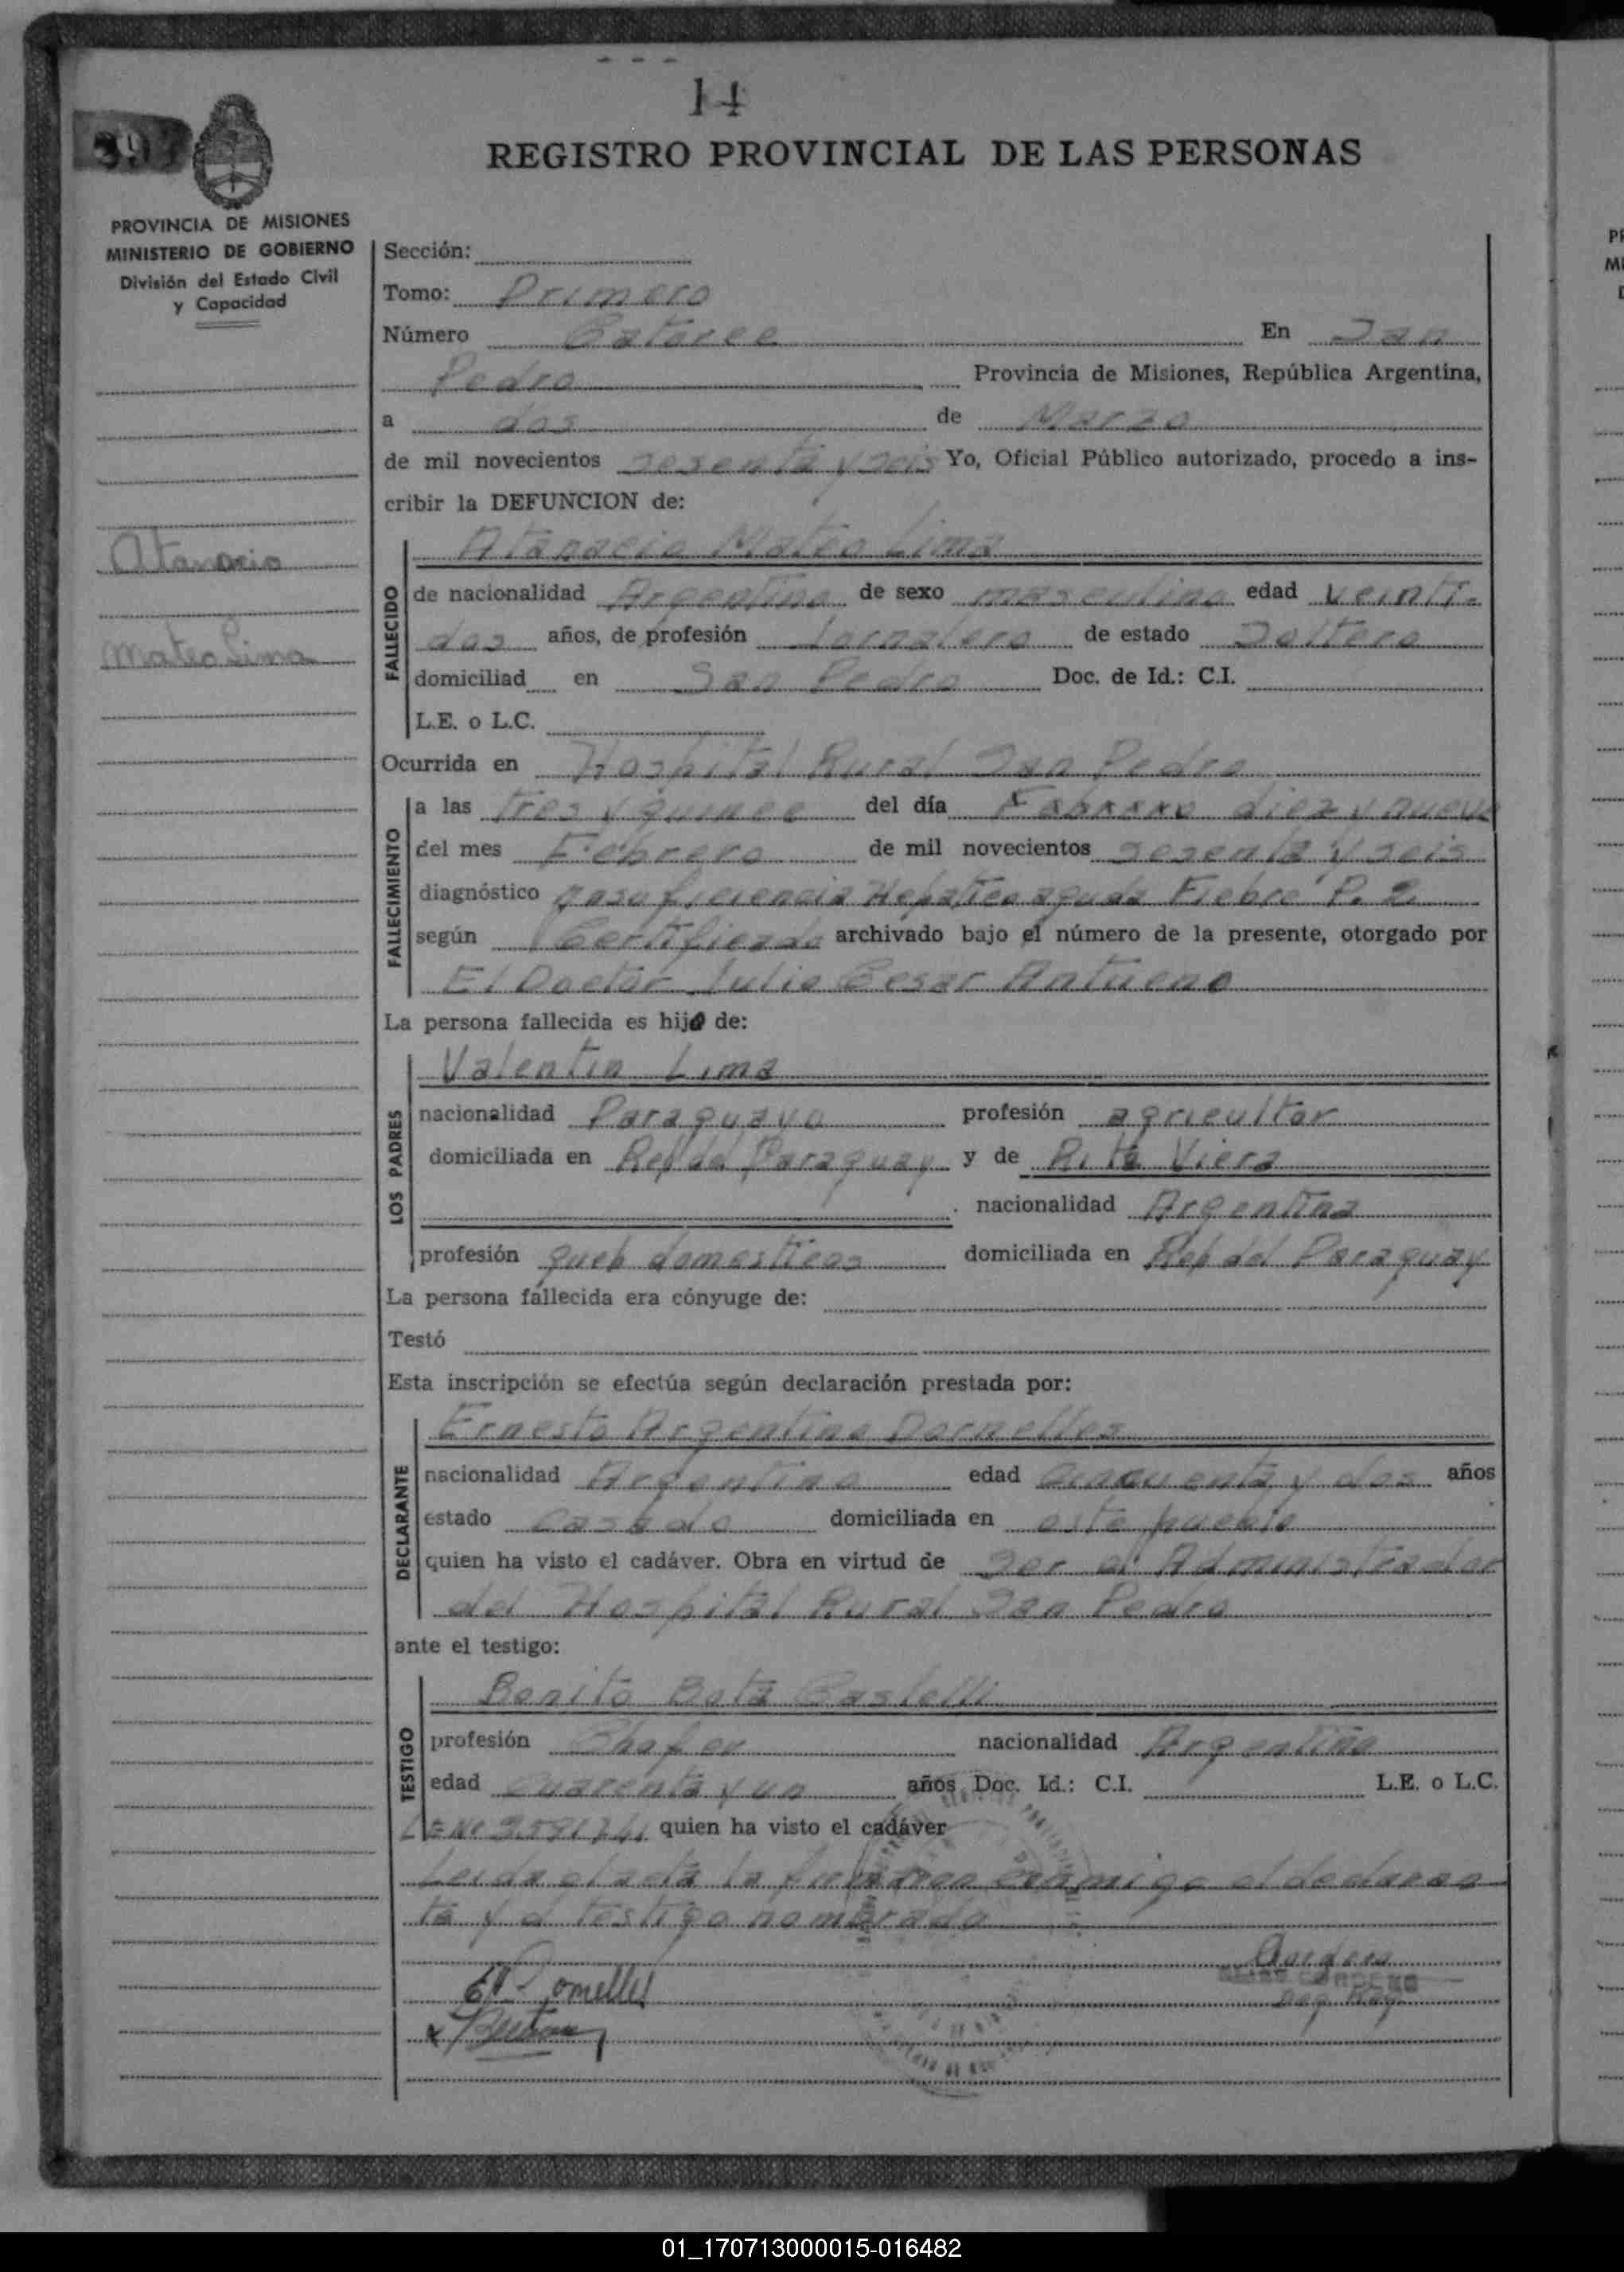 14
397
REGISTRO PROVINCIAL DE LAS PERSONAS
PROVINCIA DE MISIONES
MINISTERIO DE GOBIERNO
División del Estado Civil
y Capacidad
Atanacio
Mateo Lima
Sección:
Tomo: Primero
Número Catorce En San
Pedro Provincia de Misiones, República Argentina,
a dos de Marzo
de mil novecientos sesenta y seis Yo, Oficial Público autorizado, procedo a ins-
cribir la DEFUNCION de:
Atanacio Mateo Lima
FALLECIDO
de nacionalidad Argentina de sexo masculino edad veinti-
dos años, de profesión Jornalero de estado Soltero
domiciliad en San Pedro Doc. de Id.: C.I.
L.E. o L.C.
Ocurrida en Hospital Rural San Pedro
FALLECIMIENTO
a las tres y quince del día Febrero diez y nueve
del mes Febrero de mil novecientos sesenta y seis
diagnóstico Insuficiencia Hepatica aguda Fiebre
según Certificado archivado bajo el número de la presente, otorgado por
El Doctor Julio Cesar
La persona fallecida es hijo de:
LOS PADRES
Valentin Lima
nacionalidad Paraguayo profesión agricultor
domiciliada en Rep del Paraguay y de Rita Viera
nacionalidad Argentina
profesión queh domesticos domiciliada en Rep del Paraguay
La persona fallecida era cónyuge de:
Testó
Esta inscripción se efectúa según declaración prestada por:
DECLARANTE
Ernesto Argentino Dornelles
nacionalidad Argentino edad Cincuenta y dos años
estado casado domiciliada en este pueblo
quien ha visto el cadáver. Obra en virtud de ser el Administrador
del Hospital Rural San Pedro
ante el testigo:
TESTIGO
Benito Castelli
profesión Chofer nacionalidad Argentina
edad cuarenta y un años Doc. Id.: C.I. L.E. o L.C.
quien ha visto el cadáver
Leida el acta la firman conmigo el declaran
te y el testigo nombrado
01_170713000015-016482